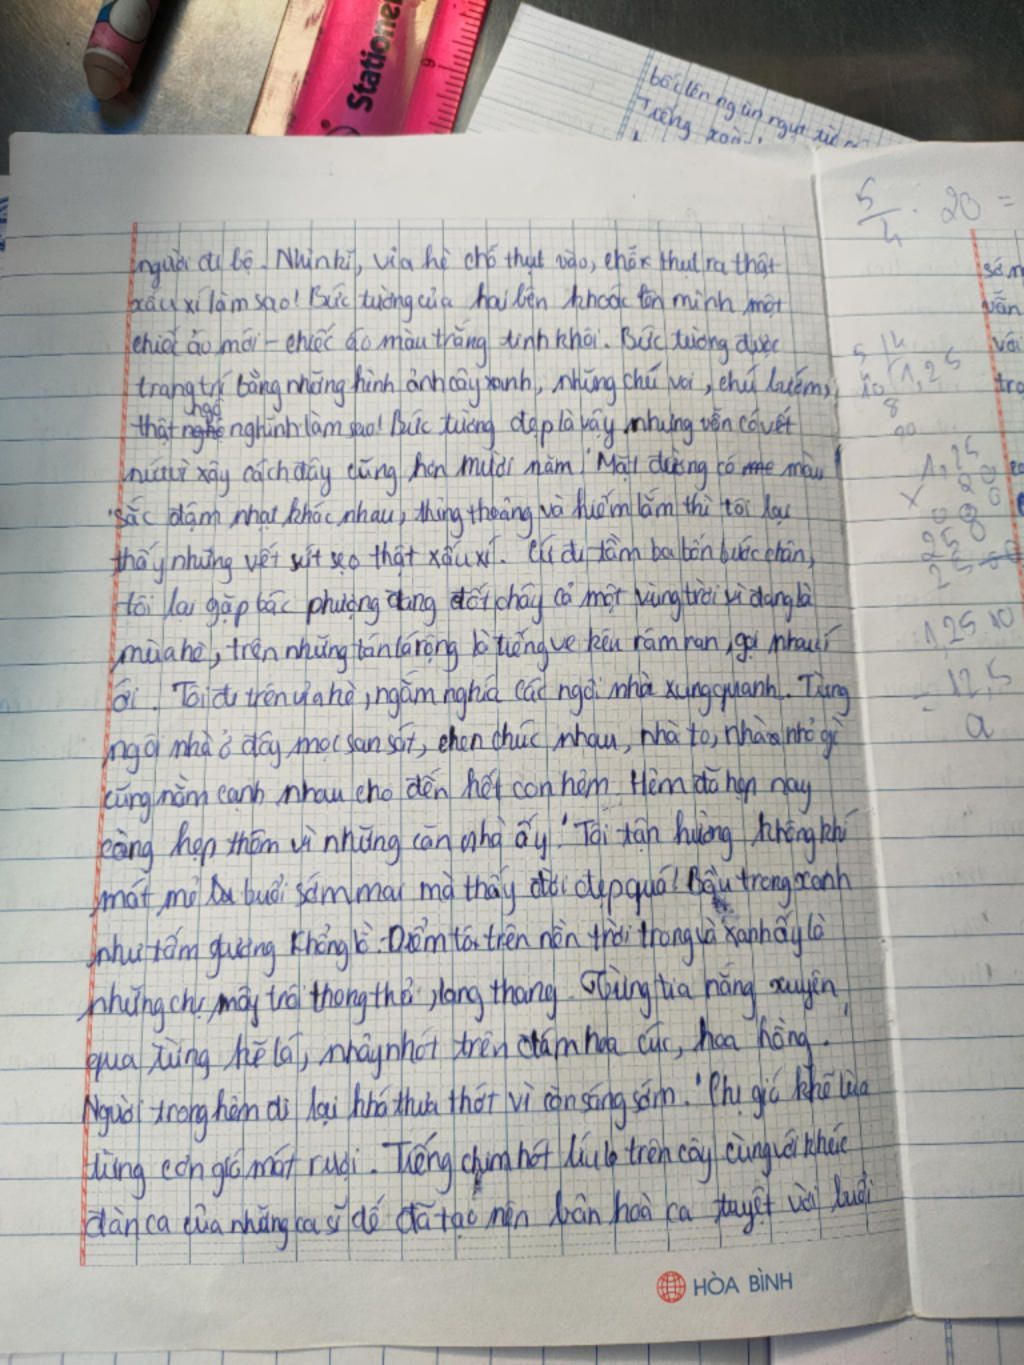 Stationer
bốc lên ngùn ngụt
Tiếng
5/4 . 20 =
người đi bộ. Nhìn kĩ, vỉa hè chỗ thụt vào, chỗ thụt ra thật
xấu xí làm sao! Bức tường của hai bên khoác lên mình một
chiếc áo mới - chiếc áo màu trắng tinh khôi. Bức tường được
trang trí bằng những hình ảnh cây xanh, những chú voi, chú
ngộ
thật nghộ nghĩnh làm sao! Bức tường đẹp là vậy nhưng vẫn có vết
nứt vì xây cách đây cũng hơn mười năm. Mặt đường có màu
sắc đậm nhạt khác nhau, thỉnh thoảng và hiếm lắm thì tôi lại
thấy những vết sứt sẹo thật xấu xí. Cứ đi tầm ba bốn bước chân,
tôi lại gặp bác phượng đang đốt cháy cả một vùng trời vì đang là
mùa hè, trên những tán lá rộng là tiếng ve kêu râm ran, gọi nhau í
ới. Tôi đi trên vỉa hè, ngắm nghía các ngôi nhà xung quanh. Từng
ngôi nhà ở đây mọc san sát, chen chúc nhau, nhà to, nhà nhỏ gì
cũng nằm cạnh nhau cho đến hết con hẻm. Hẻm đã hẹp nay
càng hẹp thêm vì những căn nhà ấy. Tôi tận hưởng không khí
mát mẻ buổi sớm mai mà thấy đời đẹp quá! Bầu trong xanh
như tấm gương khổng lồ. Điểm tô trên nền trời trong và xanh ấy là
những chị mây trôi thong thả, lang thang. Từng tia nắng xuyên
qua từng kẽ lá, nhảy nhót trên đám hoa cúc, hoa hồng.
Người trong hẻm đi lại khá thưa thớt vì còn sáng sớm. Chị gió khẽ lùa
từng cơn gió mát rượi. Tiếng chim hót líu lo trên cây cùng với khúc
đàn ca của những ca sĩ dế đã tạo nên bản hoà ca tuyệt vời buổi
1,25
1,25.10
= 12,5
a
HÒA BÌNH